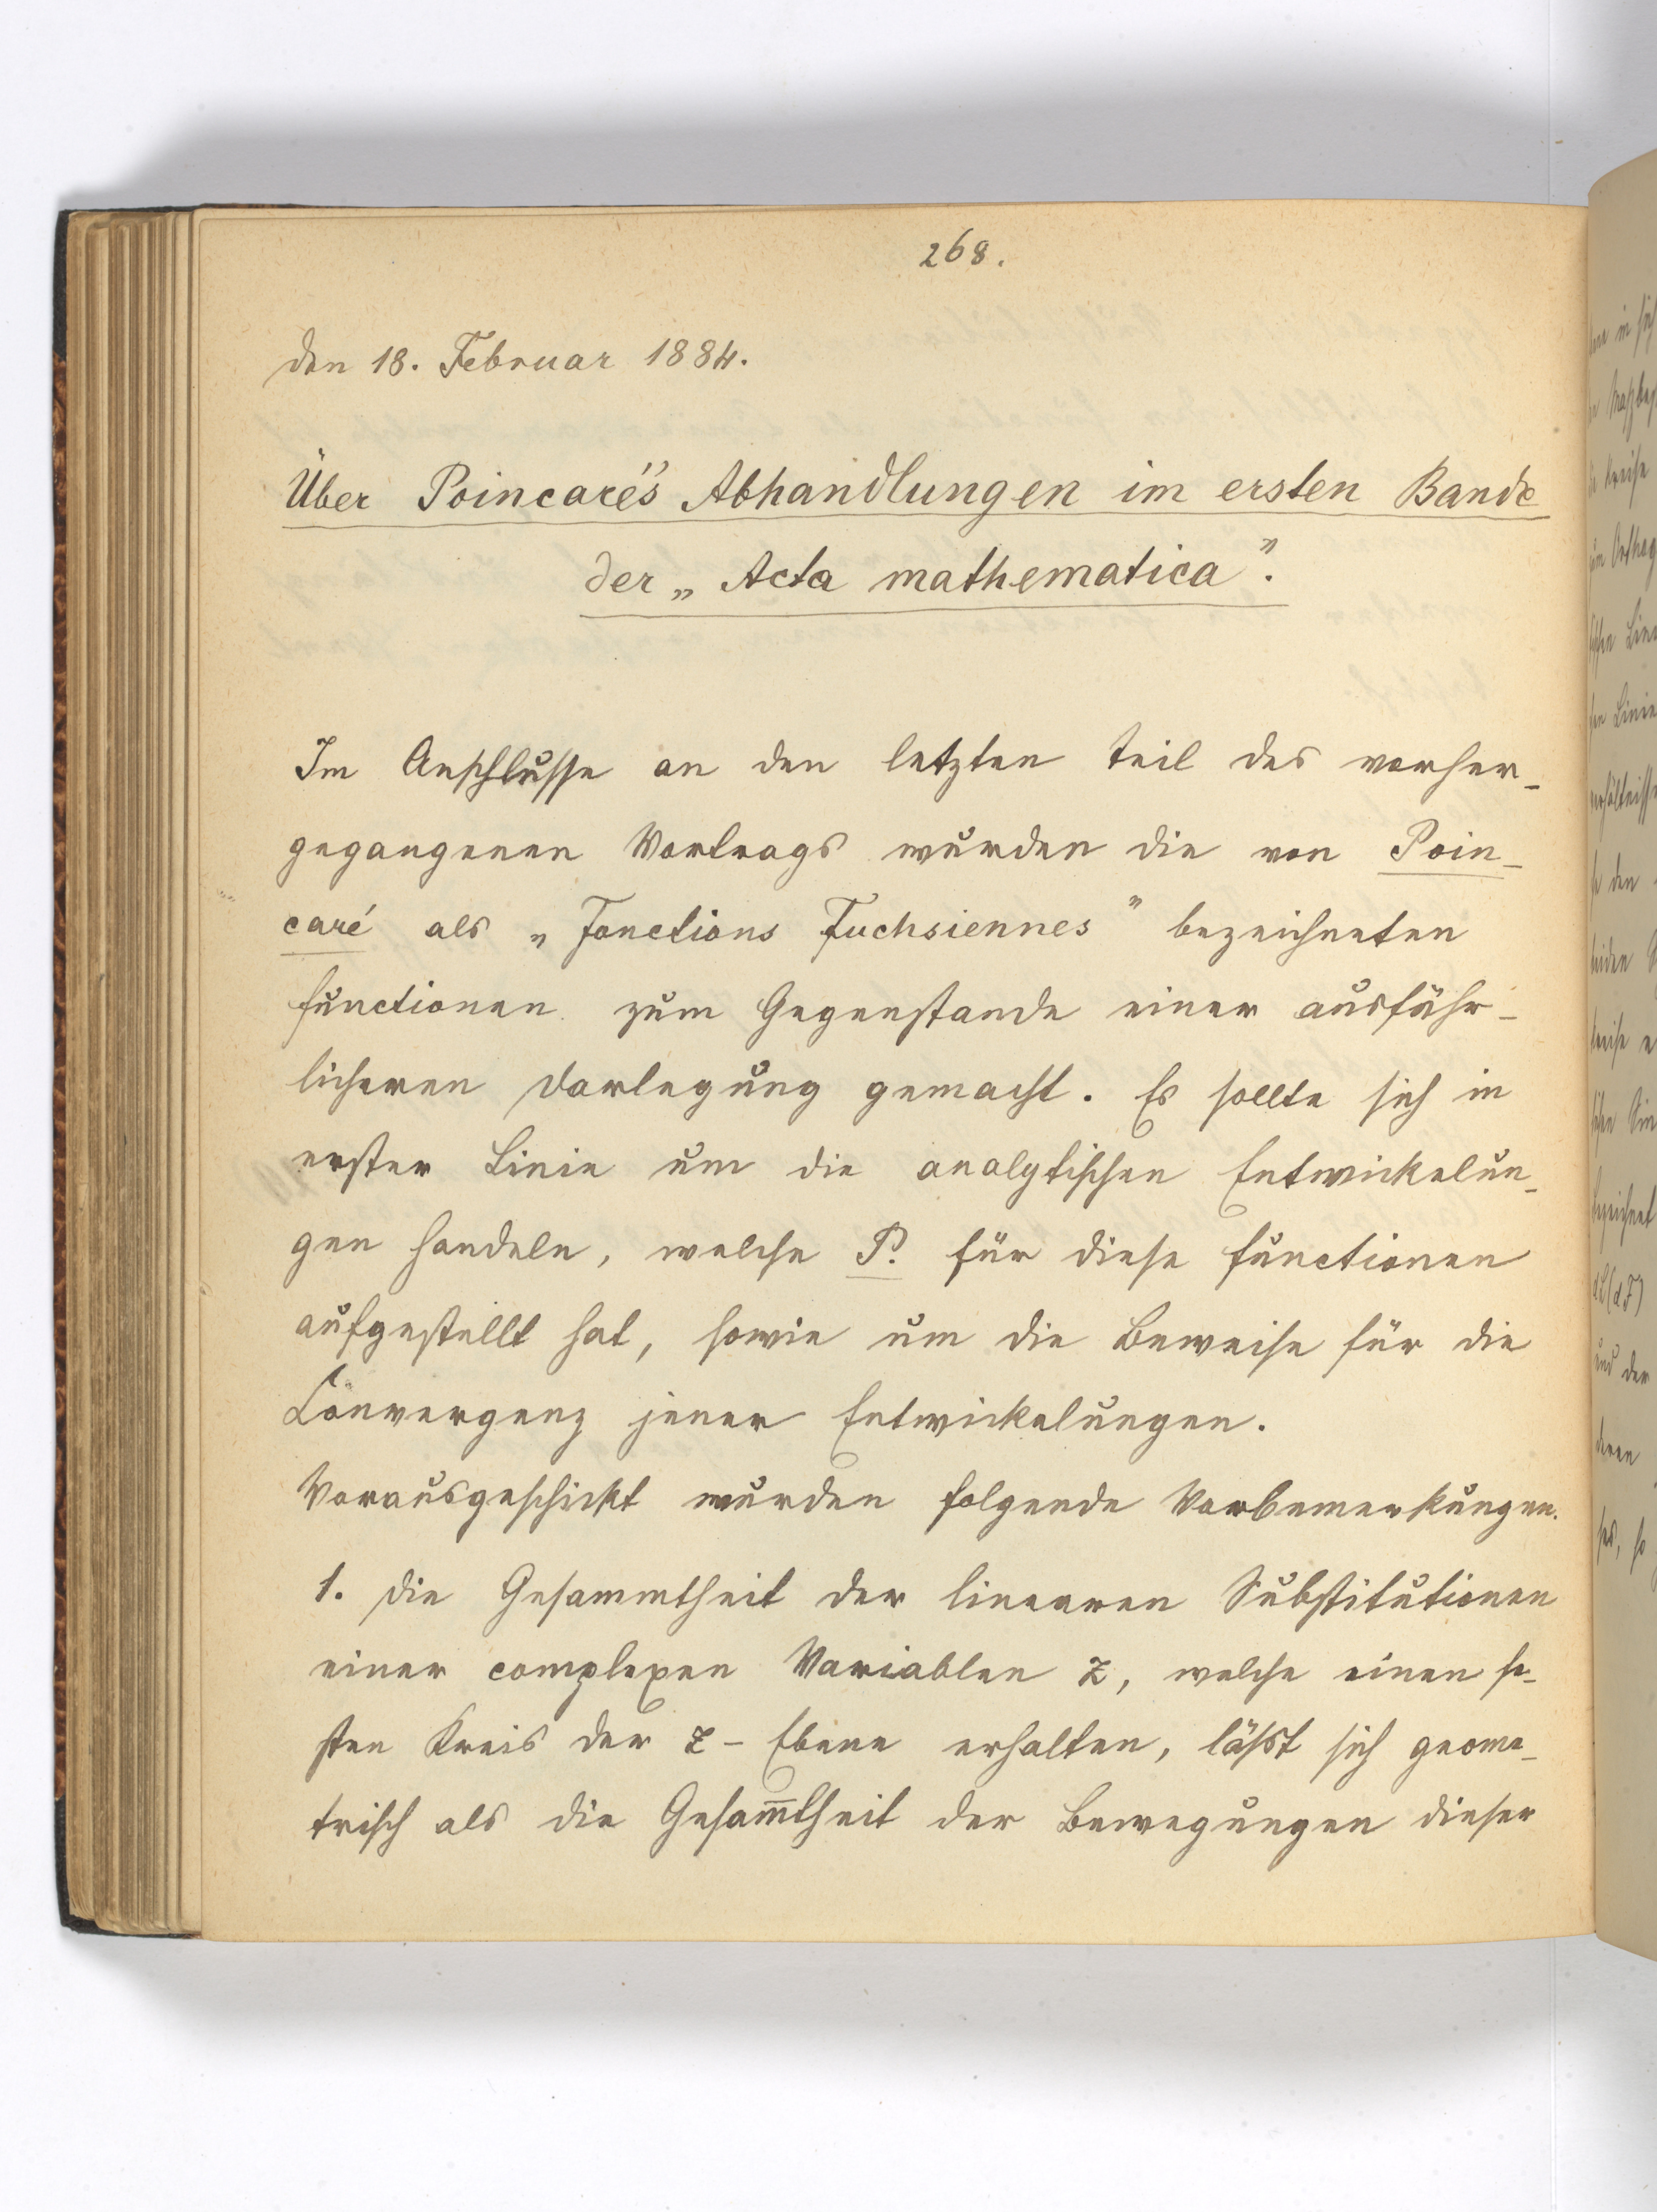 268.
den 18. Februar 1884.
Über Poincaré's Abhandlungen im ersten Bande
der „Acta mathematica”.
Im Anschlusse an den letzten Teil des vorher-
gegangenen Vortrags wurden die von Poin-
caré als „Fonctions Fuchsiennes” bezeichneten
Functionen zum Gegenstande einer ausführ-
licheren Darlegung gemacht. Es sollte sich in
erster Linie um die analytischen Entwickelun-
gen handeln, welche P. für diese Functionen
aufgestellt hat, sowie um die Beweise für die
Convergenz jener Entwickelungen.
Vorausgeschickt wurden folgende Vorbemerkungen.
1. Die Gesammtheit der linearen Substitutionen
einer complexen Variablen z, welche einen fe-
sten Kreis der z-Ebene erhalten, läßt sich geome-
trisch als die Gesam̅theit der Bewegungen dieser